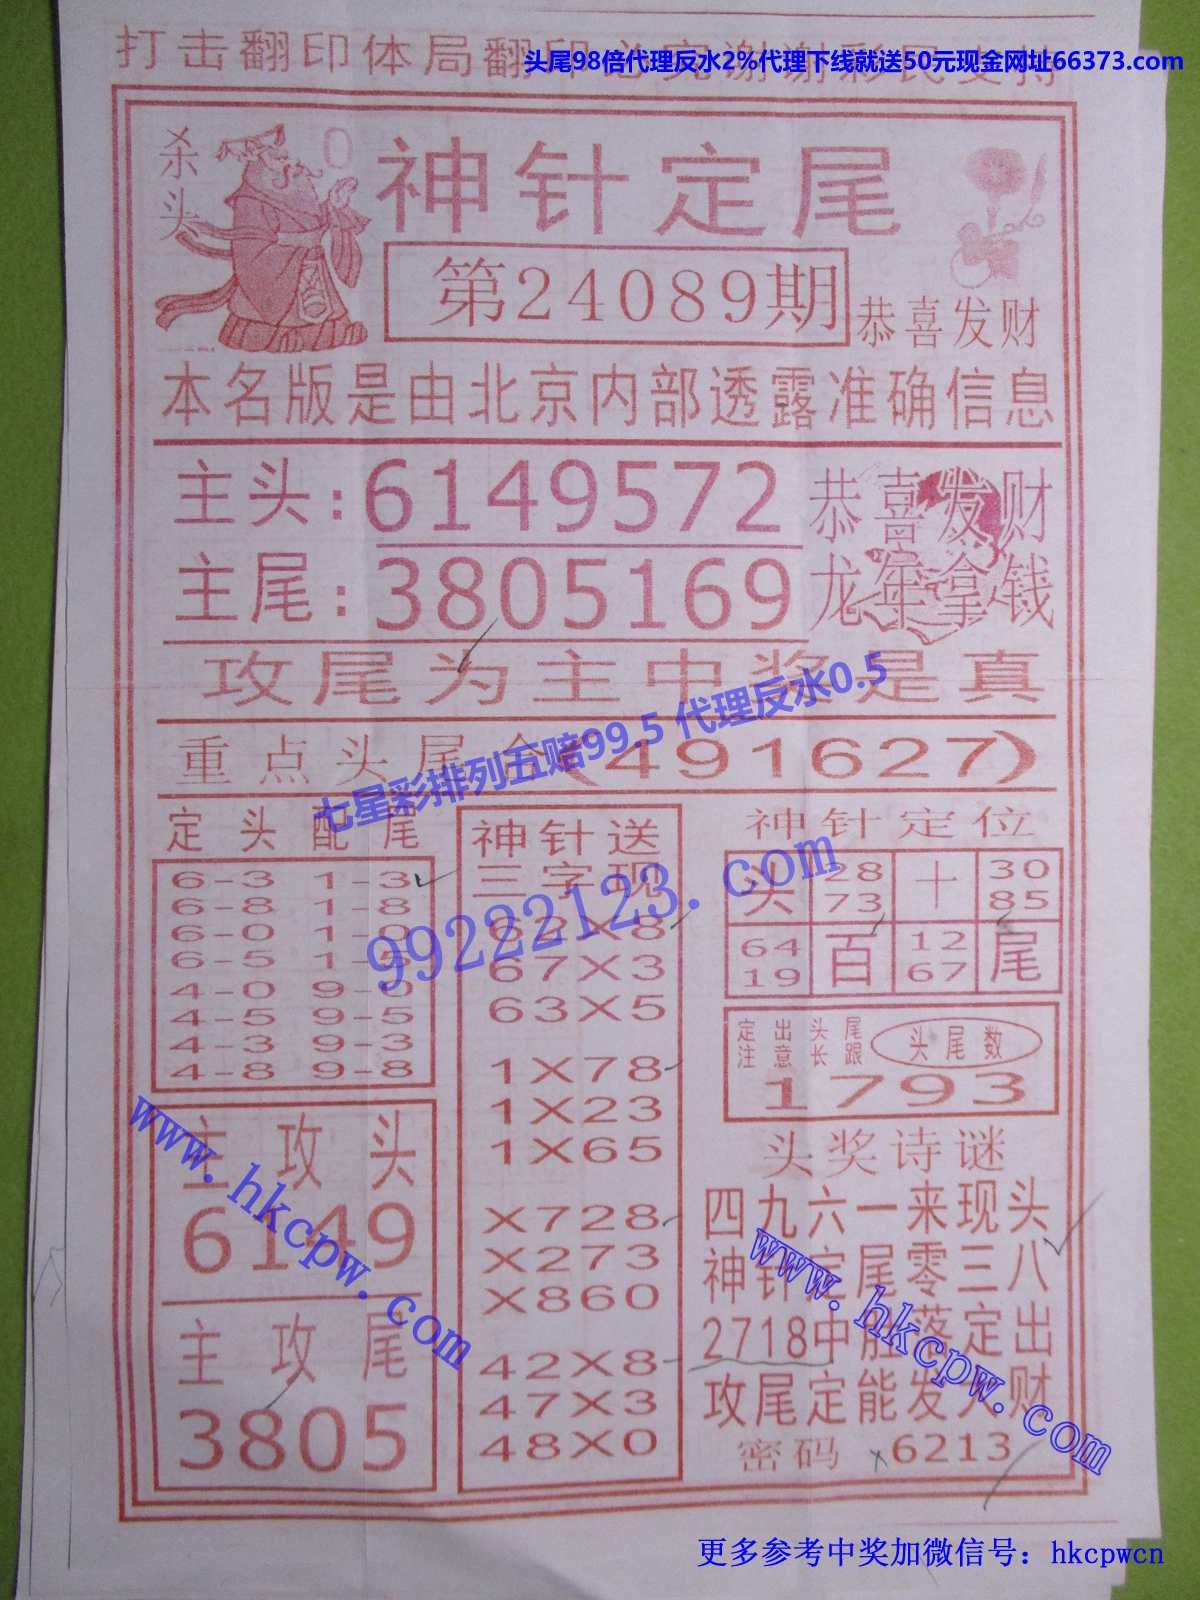 打击翻印体局翻印必究谢谢彩民支持
头尾98倍代理反水2%代理下线就送50元现金网址66373.com
杀头
0
神针定尾
第24089期
恭喜发财
本名版是由北京内部透露准确信息
主头:6149572
恭喜发财
主尾:3805169
龙年拿钱
攻尾为主中奖是真
重点头尾合(491627)
七星彩排列五赔99.5 代理反水0.5
定头配尾
6-3 1-3
6-8 1-8
6-0 1-0
6-5 1-5
4-0 9-0
4-5 9-5
4-3 9-3
4-8 9-8
主攻头
6149
主攻尾
3805
神针送
三字现
62X8
67X3
63X5
1X78
1X23
1X65
X728
X273
X860
42X8
47X3
48X0
99222123.com
神针定位
头 28 十 30
73 85
64 百 12 尾
19 67
定出头尾
注意长跟
头尾数
1793
头奖诗谜
四九六一来现头
神针定尾零三八
2718中胜落定出
攻尾定能发大财
密码 x6213
www.hkcpw.com
www.hkcpw.com
更多参考中奖加微信号：hkcpwcn